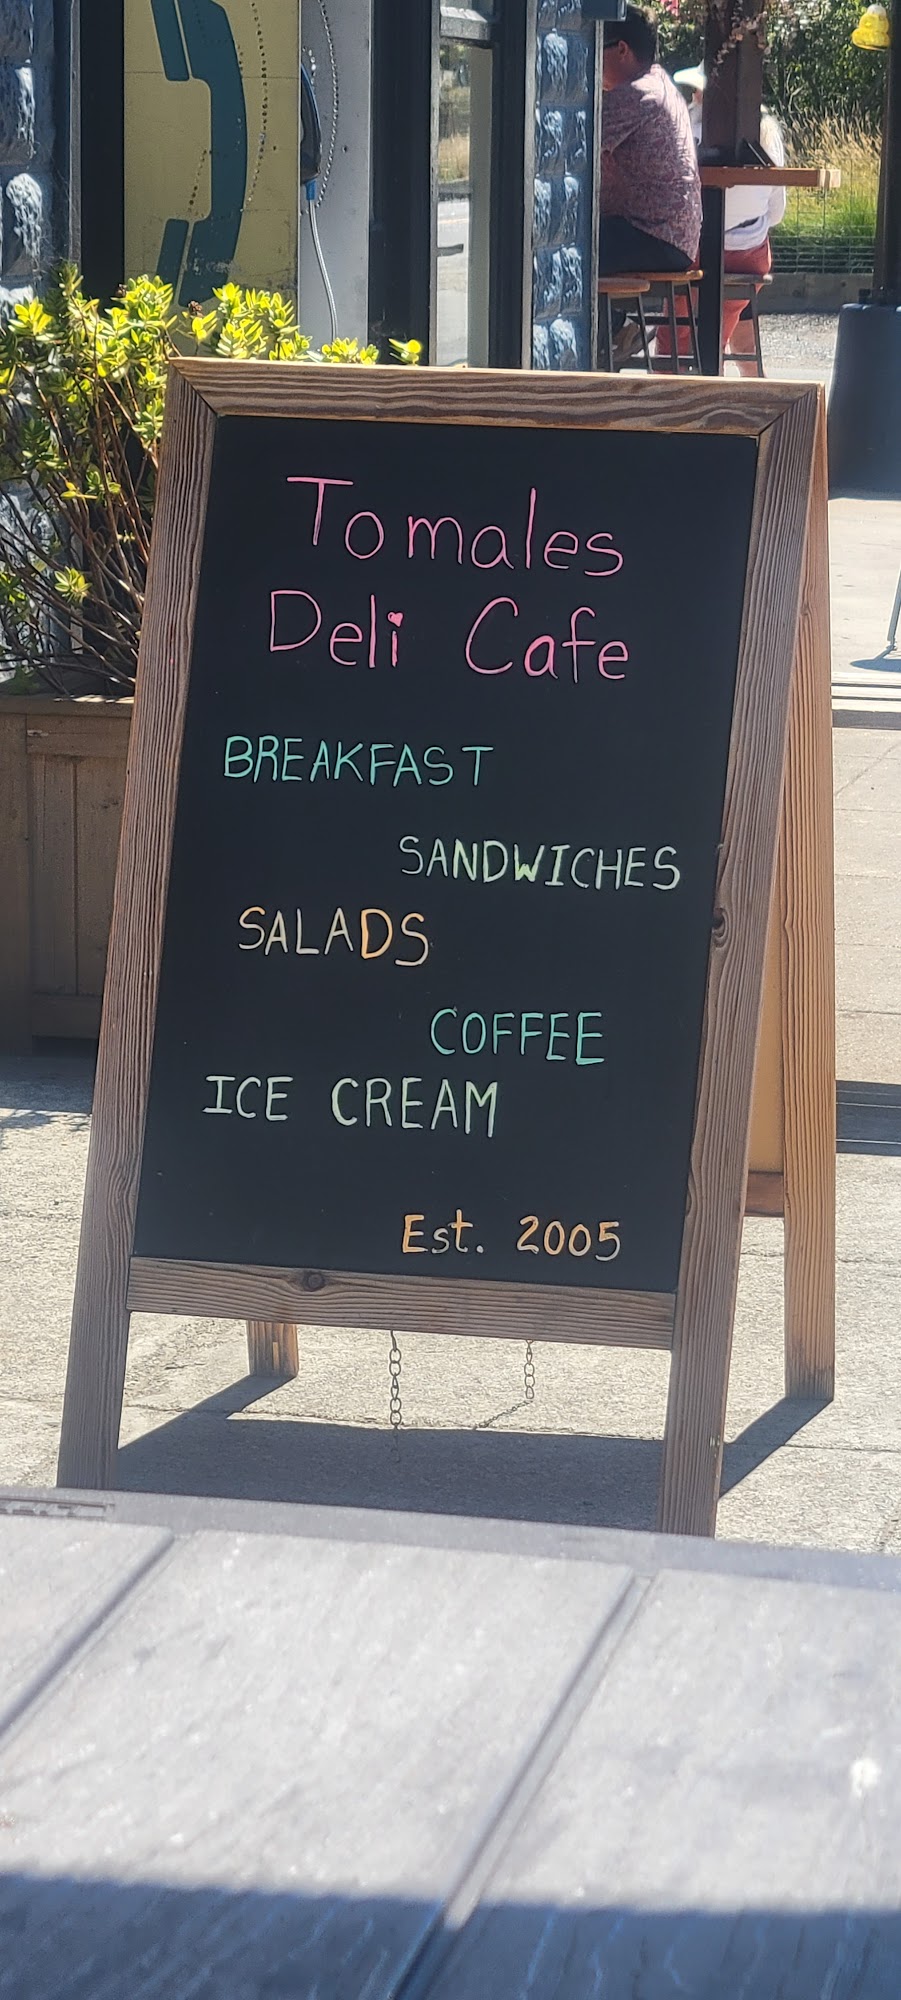 Tomales
Deli Cafe
BREAKFAST
SANDWICHES
SALADS
COFFEE
ICE CREAM
Est. 2005